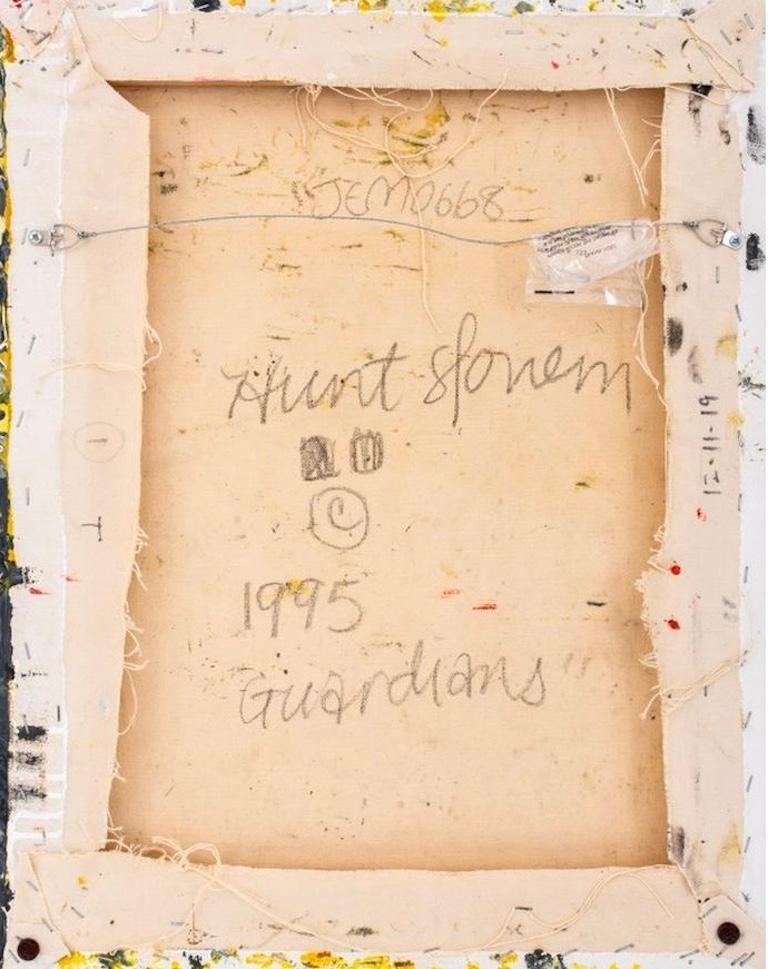 JEM0668
Hunt Slonem
©
1995
Guardians"
12-11-19
1
T